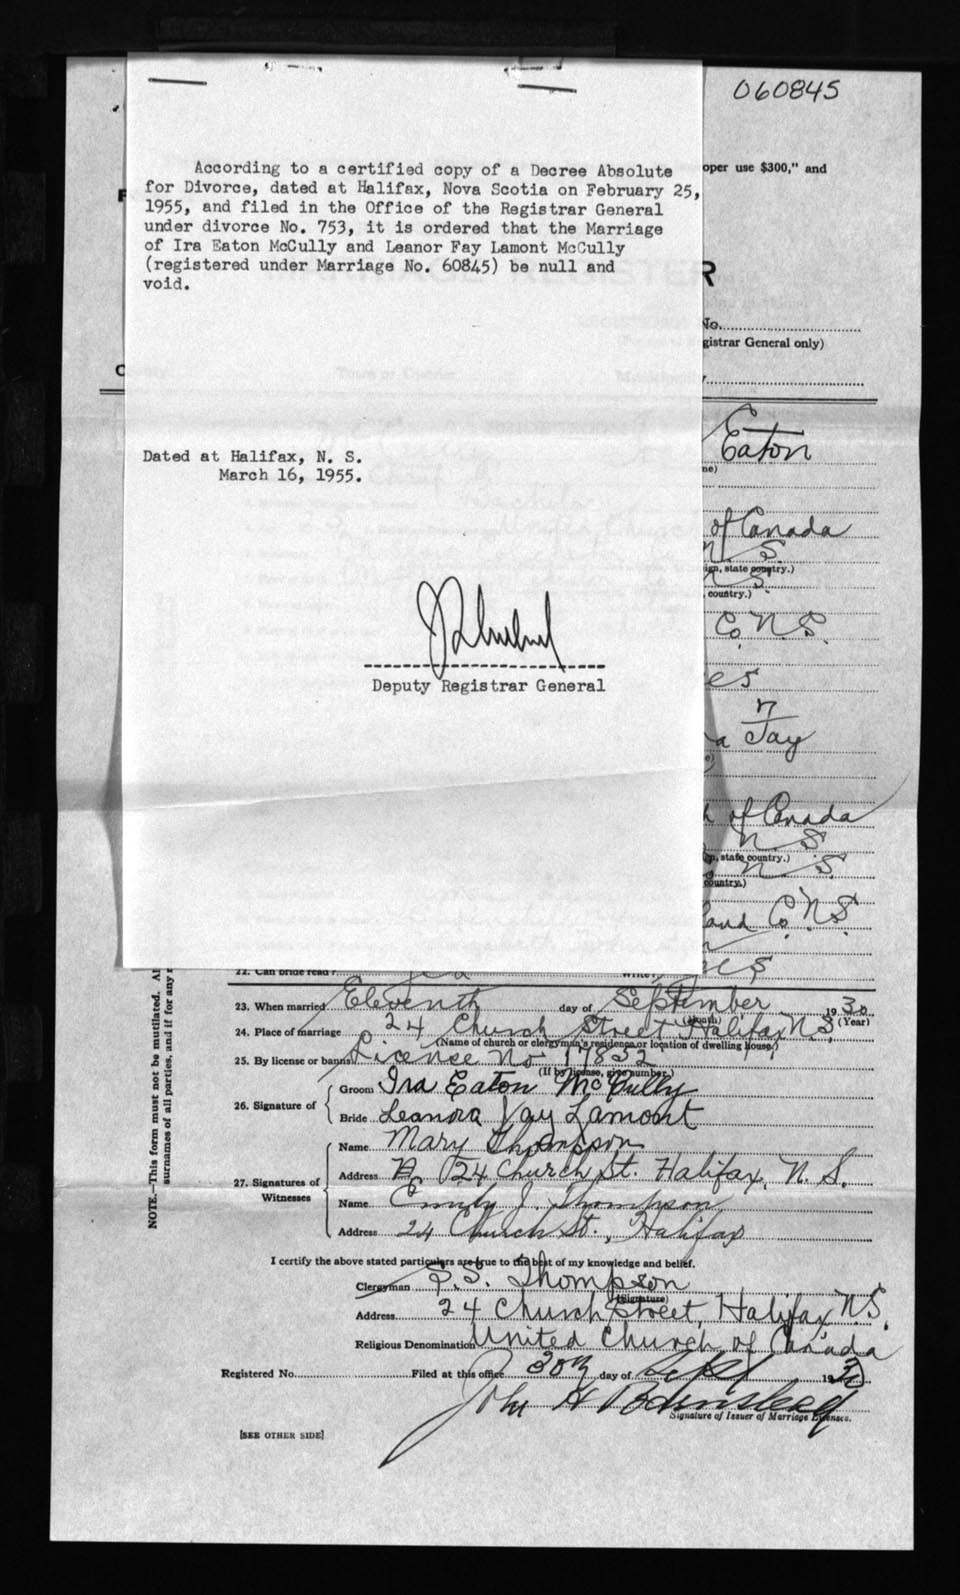 060845
According to a certified copy of a Decree Absolute
for Divorce, dated at Halifax, Nova Scotia on February 25,
1955, and filed in the Office of the Registrar General
under divorce No. 753, it is ordered that the Marriage
of Ira Eaton McCully and Leanor Fay Lamont McCully
(registered under Marriage No. 60845) be null and
void.
Dated at Halifax, N. S.
March 16, 1955.
Deputy Registrar General
oper use $300," and
R
No.
gistrar General only)
Eaton
me)
of Canada
N. S.
ign, state country.)
N. S.
country.)
Co. N. S.
es
7
a Fay
e)
h of Canada
N. S.
gn, state country.)
N. S.
country.)
land Co. N. S.
yes
22. Can bride read?
Write?
NOTE.—This form must not be mutilated.
surnames of all parties, and if for any
23. When married Eleventh day of September 1930
(Month) (Year)
24. Place of marriage 24 Church Street Halifax N.S.
(Name of church or clergyman's residence or location of dwelling house.)
25. By license or banns License No 17832
(If by license, give number.)
26. Signature of
Groom Ira Eaton McCully
Bride Leanora Fay Lamont
27. Signatures of Witnesses
Name Mary Thompson
Address 24 Church St. Halifax, N. S.
Name Emily J. Thompson
Address 24 Church St., Halifax
I certify the above stated particulars are true to the best of my knowledge and belief.
Clergyman S. Thompson
(Signature)
Address 24 Church Street, Halifax N.S.
Religious Denomination United Church of Canada
Registered No. Filed at this office 30th day of Sept 1930
John H
Signature of Issuer of Marriage Licenses.
[SEE OTHER SIDE]